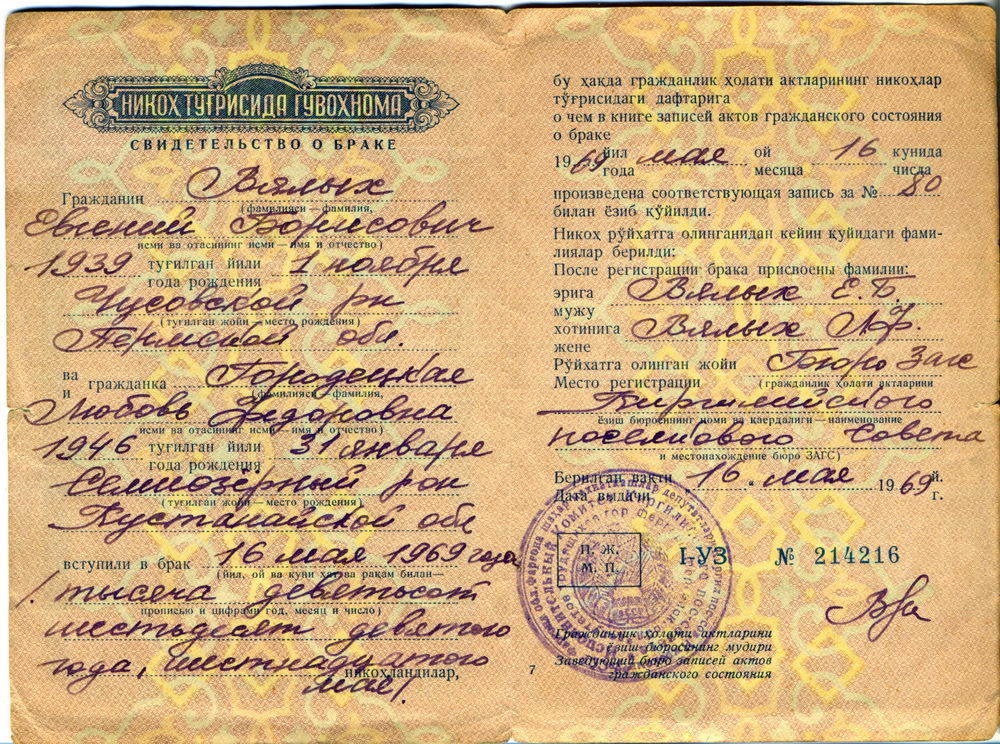 НИКОҲ ТУҒРИСИДА ГУВОҲНОМА
СВИДЕТЕЛЬСТВО О БРАКЕ
Гражданин Вялых
(фамилияси—фамилия,
Евгений Борисович
исми ва отасининг исми—имя и отчество)
1939 туғилган йили 1 ноября
года рождения
Чусовской рн
(туғилган жойи—место рождения)
Пермской обл.
ва
и гражданка Городецкая
(фамилияси—фамилия,
Любовь Федоровна
исми ва отасининг исми—имя и отчество)
1946 туғилган йили 3 января
года рождения
Семиозёрный рон
(туғилган жойи—место рождения)
Кустанайской обл
вступили в брак 16 мая 1969 года
(йил, ой ва куни ҳатва рақам билан—
/тысяча девятьсот
прописью и цифрами год, месяц и число)
шестьдесят девятого
года, шестнадцатого
никоҳландилар,
мая/
бу ҳақда гражданлик ҳолати актларининг никоҳлар
тўғрисидаги дафтарига
о чем в книге записей актов гражданского состояния
о браке
1969 йил мая ой 16 кунида
года месяца числа
произведена соответствующая запись за № 80
билан ёзиб қўйилди.
Никоҳ рўйхатга олинганидан кейин қуйидаги фами-
лиялар берилди:
После регистрации брака присвоены фамилии:
эрига Вялых Е.Б.
мужу
хотинига Вялых Л.Ф.
жене
Рўйхатга олинган жойи Бюро Загс
Место регистрации (гражданлик ҳолати актларини
Киргилийского
ёзиш бюросининг номи ва қаердалиги—наименование
поселкового Совета
и местонахождение бюро ЗАГС)
Берилган вақти 16 " мая 1969 й.
Дата выдачи г.
П. Ж.
М. П.
I-УЗ № 214216
Гражданлик ҳолати актларини
ёзиш бюросининг мудири
Заведующий бюро записей актов
гражданского состояния
7